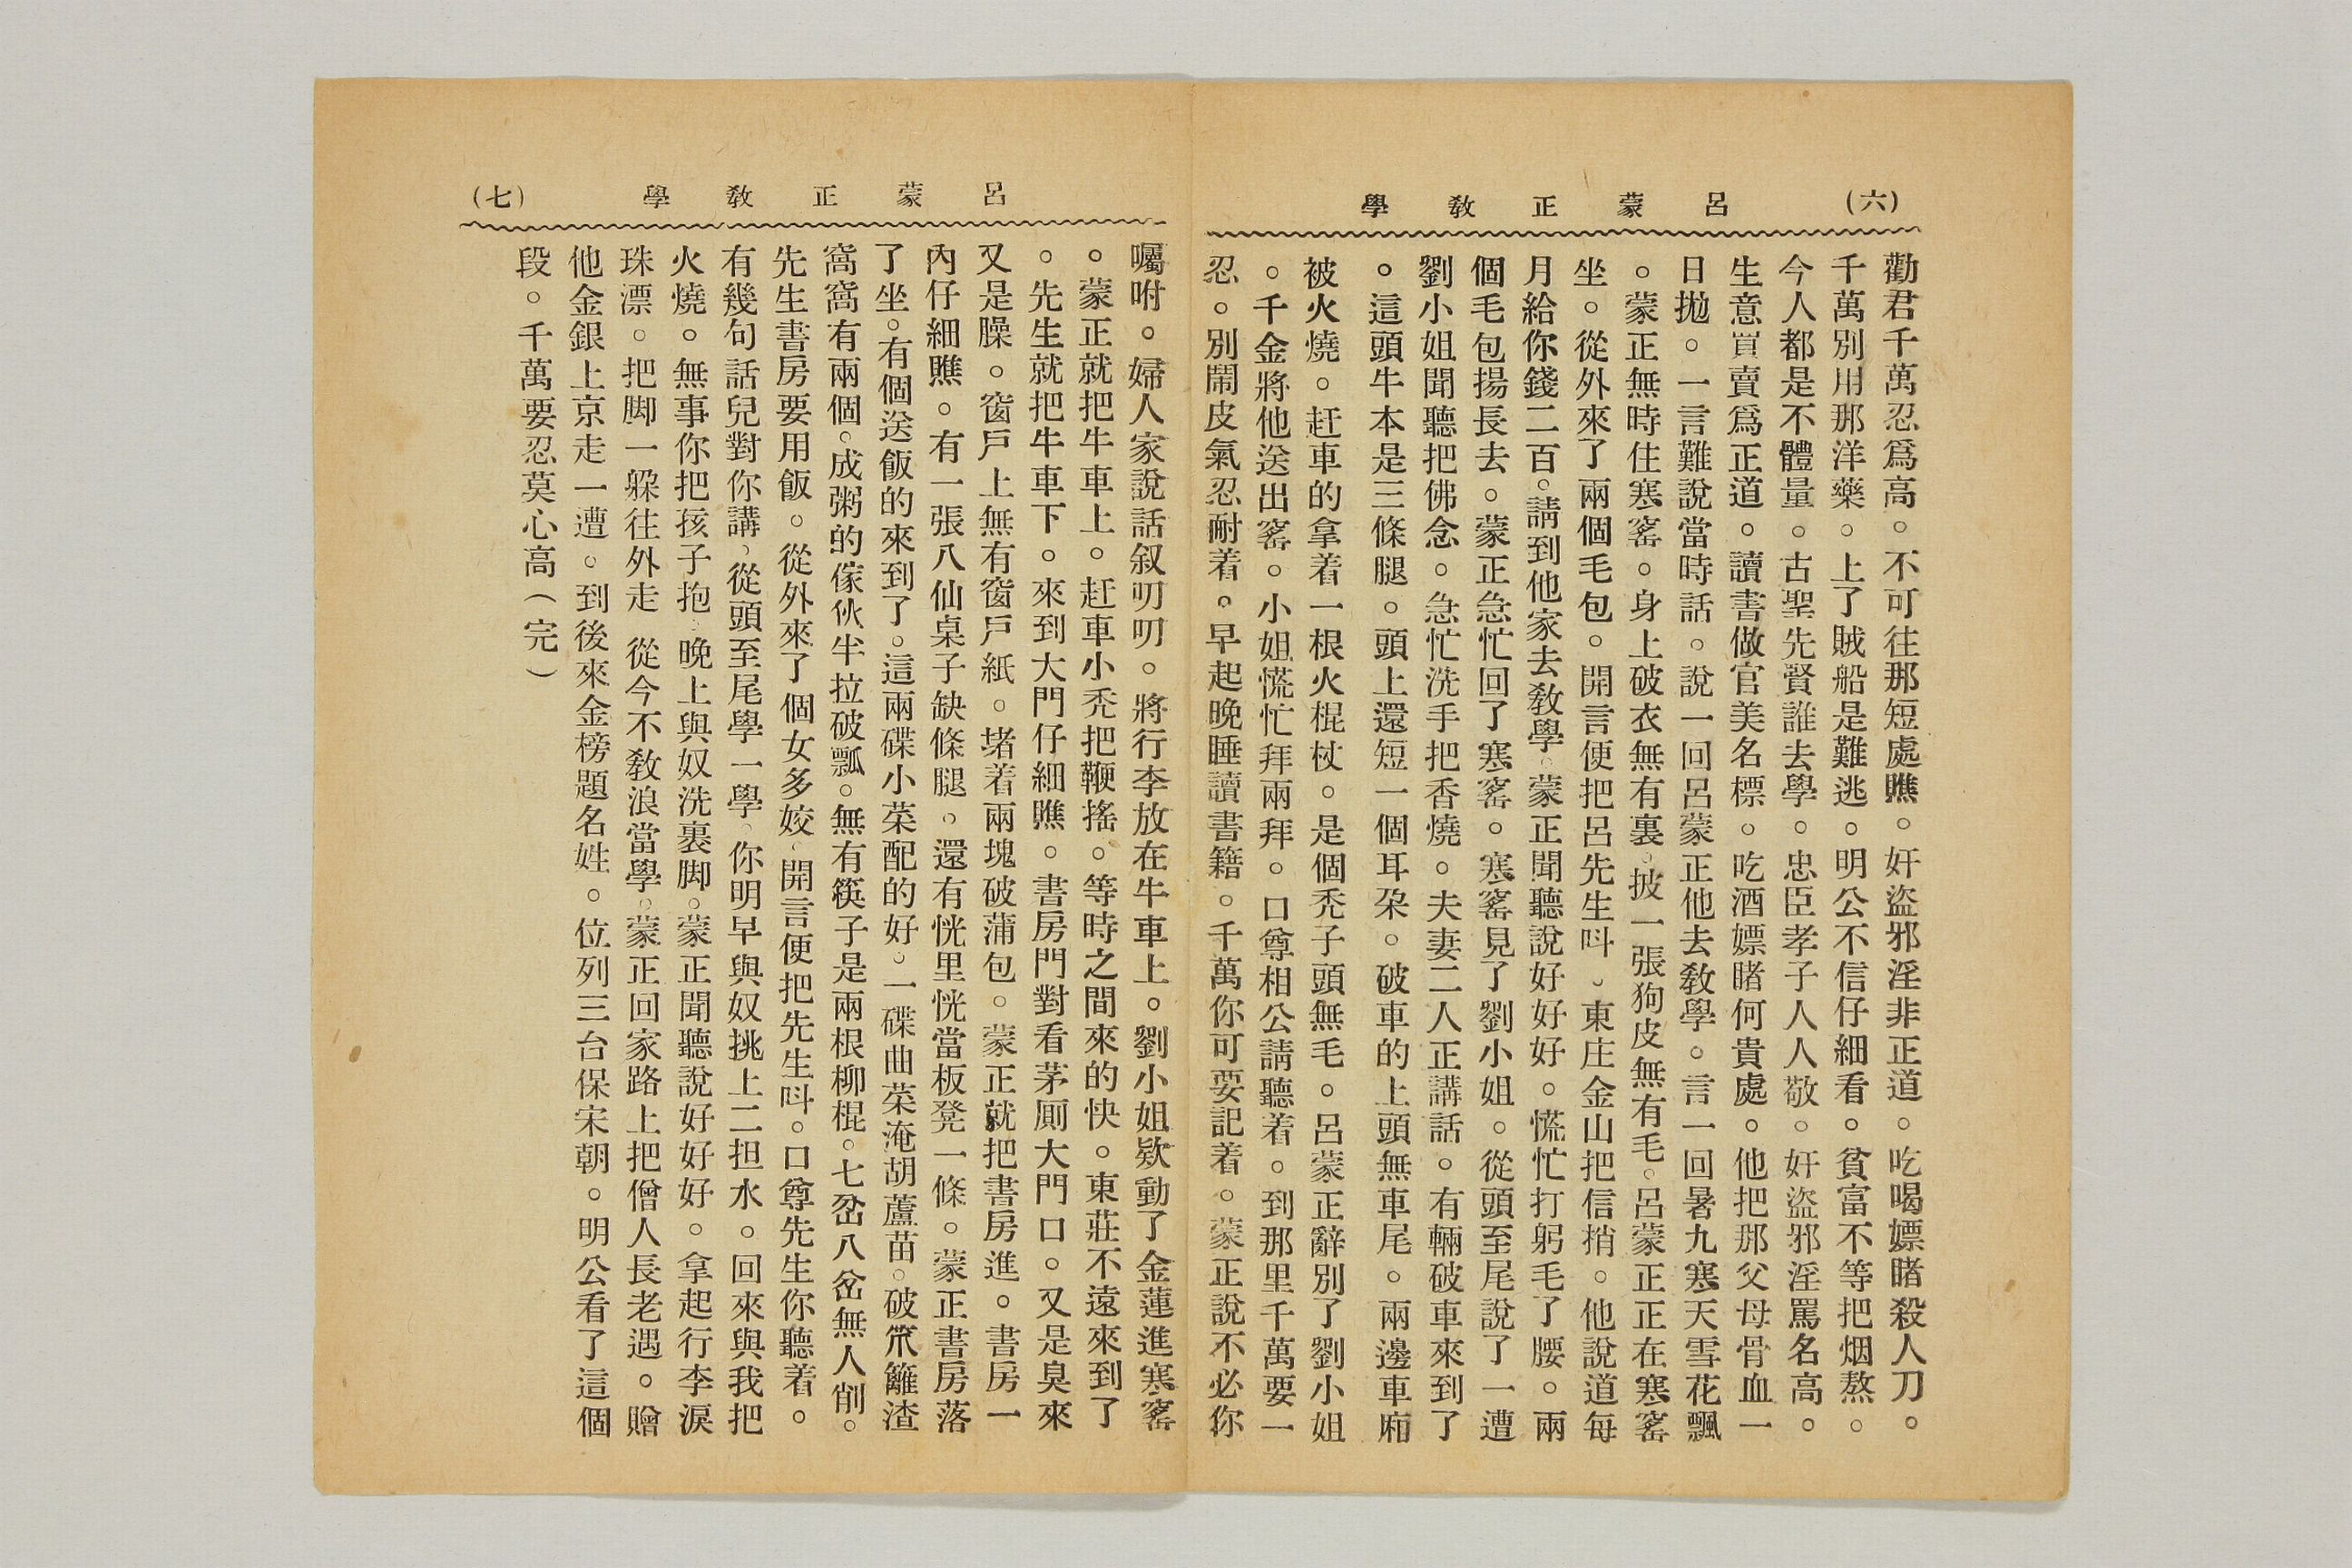 (六)
呂蒙正敎學
勸君千萬忍爲高。不可往那短處瞧。奸盜邪淫非正道。吃喝嫖賭殺人刀。
千萬別用那洋藥。上了賊船是難逃。明公不信仔細看。貧富不等把烟熬。
今人都是不體量。古聖先賢誰去學。忠臣孝子人人敬。奸盜邪淫罵名高。
生意買賣爲正道。讀書做官美名標。吃酒嫖賭何貴處。他把那父母骨血一
日拋。一言難說當時話。說一回呂蒙正他去敎學。言一回暑九寒天雪花飄
。蒙正無時住寒窰。身上破衣無有裏。披一張狗皮無有毛。呂蒙正正在寒窰
坐。從外來了兩個毛包。開言便把呂先生呌。東庄金山把信捎。他說道每
月給你錢二百。請到他家去敎學。蒙正聞聽說好好好。慌忙打躬毛了腰。兩
個毛包揚長去。蒙正急忙回了寒窰。寒窰見了劉小姐。從頭至尾說了一遭
劉小姐聞聽把佛念。急忙洗手把香燒。夫妻二人正講話。有輛破車來到了
。這頭牛本是三條腿。頭上還短一個耳朶。破車的上頭無車尾。兩邊車廂
被火燒。赶車的拿着一根火棍杖。是個禿子頭無毛。呂蒙正辭別了劉小姐
。千金將他送出窰。小姐慌忙拜兩拜。口尊相公請聽着。到那里千萬要一
忍。別鬧皮氣忍耐着。早起晚睡讀書籍。千萬你可要記着。蒙正說不必你
(七)
呂蒙正敎學
囑咐。婦人家說話叙叨叨。將行李放在牛車上。劉小姐欵動了金蓮進寒窰
。蒙正就把牛車上。赶車小禿把鞭搖。等時之間來的快。東莊不遠來到了
。先生就把牛車下。來到大門仔細瞧。書房門對看茅厠大門口。又是臭來
又是臊。窗戶上無有窗戶紙。堵着兩塊破蒲包。蒙正就把書房進。書房一
內仔細瞧。有一張八仙桌子缺條腿。還有恍里恍當板凳一條。蒙正書房落
了坐。有個送飯的來到了。這兩碟小菜配的好。一碟曲菜淹胡蘆苗。破笊籬渣
窩窩有兩個。成粥的傢伙半拉破瓢。無有筷子是兩根柳棍。七岔八岔無人削。
先生書房要用飯。從外來了個女多姣。開言便把先生呌。口尊先生你聽着。
有幾句話兒對你講、從頭至尾學一學、你明早與奴挑上二担水。回來與我把
火燒。無事你把孩子抱。晚上與奴洗裏脚。蒙正聞聽說好好好。拿起行李淚
珠漂。把脚一跺往外走 從今不敎浪當學。蒙正回家路上把僧人長老遇。贈
他金銀上京走一遭。到後來金榜題名姓。位列三台保宋朝。明公看了這個
段。千萬要忍莫心高(完)